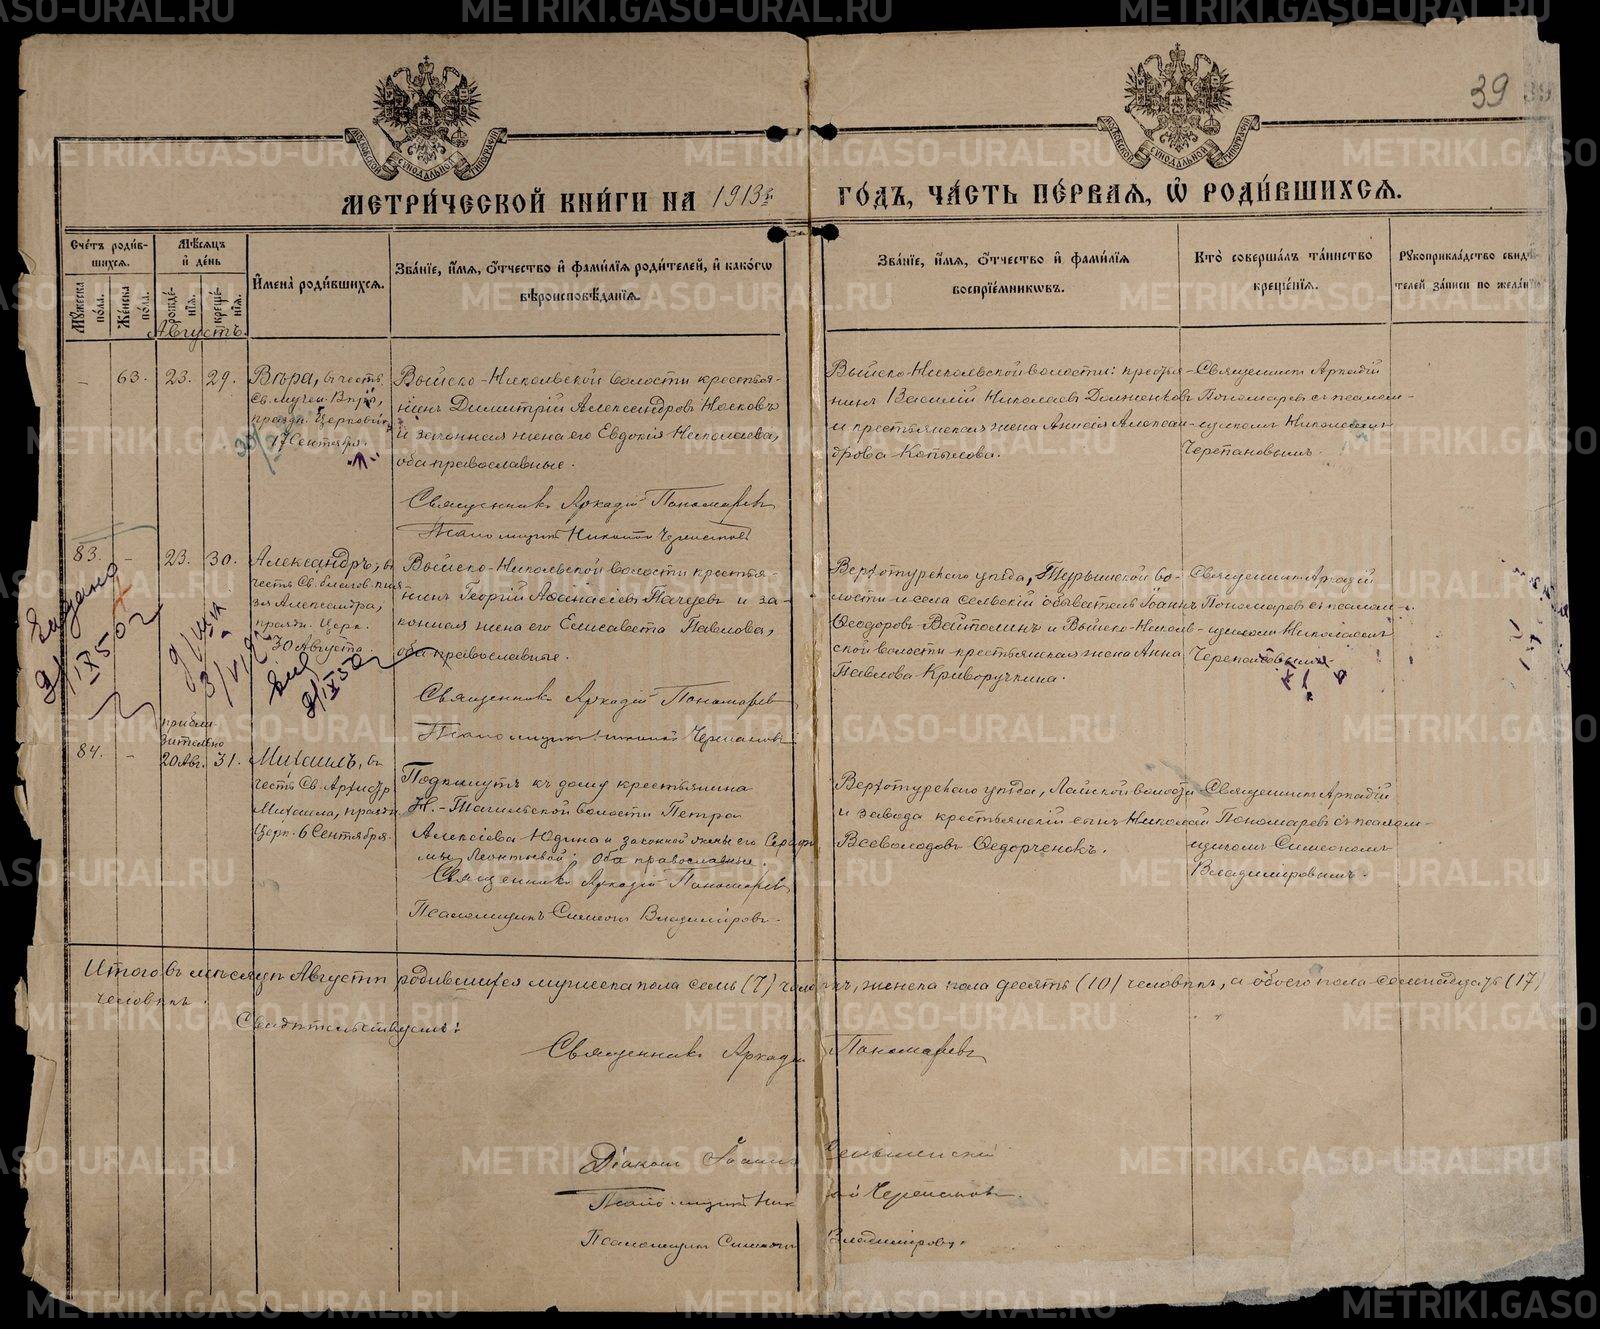 39
МОСКОВСКОЙ СѴНОДАЛЬНОЙ ТИПОГРАФІИ
МОСКОВСКОЙ СѴНОДАЛЬНОЙ ТИПОГРАФІИ
МЕТРИ́ЧЕСКОЙ КНИ́ГИ НА 1913 г. ГО́ДЪ, ЧА́СТЬ ПЕ́РВАЯ, Ѡ҆ РОДИ́ВШИХСЯ.
Сче́тъ роди́в-
шихся.
Му́жеска по́ла.
Же́нска по́ла.
Мѣ́сяцъ
и҆ де́нь
рожде́-
нїя.
креще́-
нїя.
И҆мена̀ роди́вшихся.
Зва́нїе, и҆́мя, ѻ҆́тчество и҆ фами́лїя роди́телей, и҆ како́гѡ
вѣроисповѣ́данїя.
Зва́нїе, и҆́мя, ѻ҆́тчество и҆ фами́лїя
воспрїе́мникѡвъ.
Кто̀ соверша́лъ та́инство
креще́нїя.
Рукоприкла́дство свидѣ́-
телей за́писи по жела́нїю
Августъ.
– 63. 23. 29.
Вѣра, въ честь
Св. мучен. Вѣры,
праздн. Церковью
17 Сентября.
Выйско-Никольской волости крестья-
нинъ Димитрій Александровъ Носковъ
и законная жена его Евдокія Николаева,
оба православные.
Священникъ Аркадій Пономаревъ
Псаломщикъ Николай Черепановъ
Выйско-Никольской волости: крестья-
нинъ Василій Николаевъ Долженковъ
и крестьянская жена Анисія Алексан-
дрова Копылова.
Священникъ Аркадій
Пономаревъ съ псалом-
щикомъ Николаемъ
Черепановымъ.
83. – 23. 30.
Александръ, въ
честь Св. благов. кня-
зя Александра,
праздн. Церк.
30 Августа.
Выйско-Никольской волости крестья-
нинъ Георгій Аѳанасіевъ Пачуевъ и за-
конная жена его Елисавета Павлова,
оба православные.
Священникъ Аркадій Пономаревъ
Псаломщикъ Николай Черепановъ
Верхотурскаго уѣзда, Турьинской во-
лости и села сельскій обыватель Іоаннъ
Ѳеодоровъ Войтолинъ и Выйско-Николь-
ской волости крестьянская жена Анна
Павлова Криворучкина.
Священникъ Аркадій
Пономаревъ съ псалом-
щикомъ Николаемъ
Черепановымъ
84. –
прибли-
зительно
20 Авг. 31.
Михаилъ, въ
честь Св. Архистр.
Михаила, праздн.
Церк. 6 Сентября.
Подкинутъ къ дому крестьянина
Н.-Тагильской волости Петра
Алексіева Юдина и законной жены его Серафи-
мы Леонтьевой; оба православные.
Священникъ Аркадій Пономаревъ
Псаломщикъ Симеонъ Владиміровъ.
Верхотурскаго уѣзда, Лайской волости
и завода крестьянскій сынъ Николай
Всеволодовъ Ѳедорченокъ.
Священникъ Аркадій
Пономаревъ съ псалом-
щикомъ Симеономъ
Владиміровымъ.
Итого въ мѣсяцѣ Августѣ родившихся мужеска пола семь (7) человѣкъ, женска пола десять (10) человѣкъ, а обоего пола семнадцать (17)
человѣкъ.
Свидѣтельствуемъ:
Священникъ Аркадій Пономаревъ
Діаконъ Іоаннъ
Псаломщикъ Николай Черепановъ
Псаломщикъ Симеонъ Владиміровъ.
METRIKI.GASO-URAL.RU